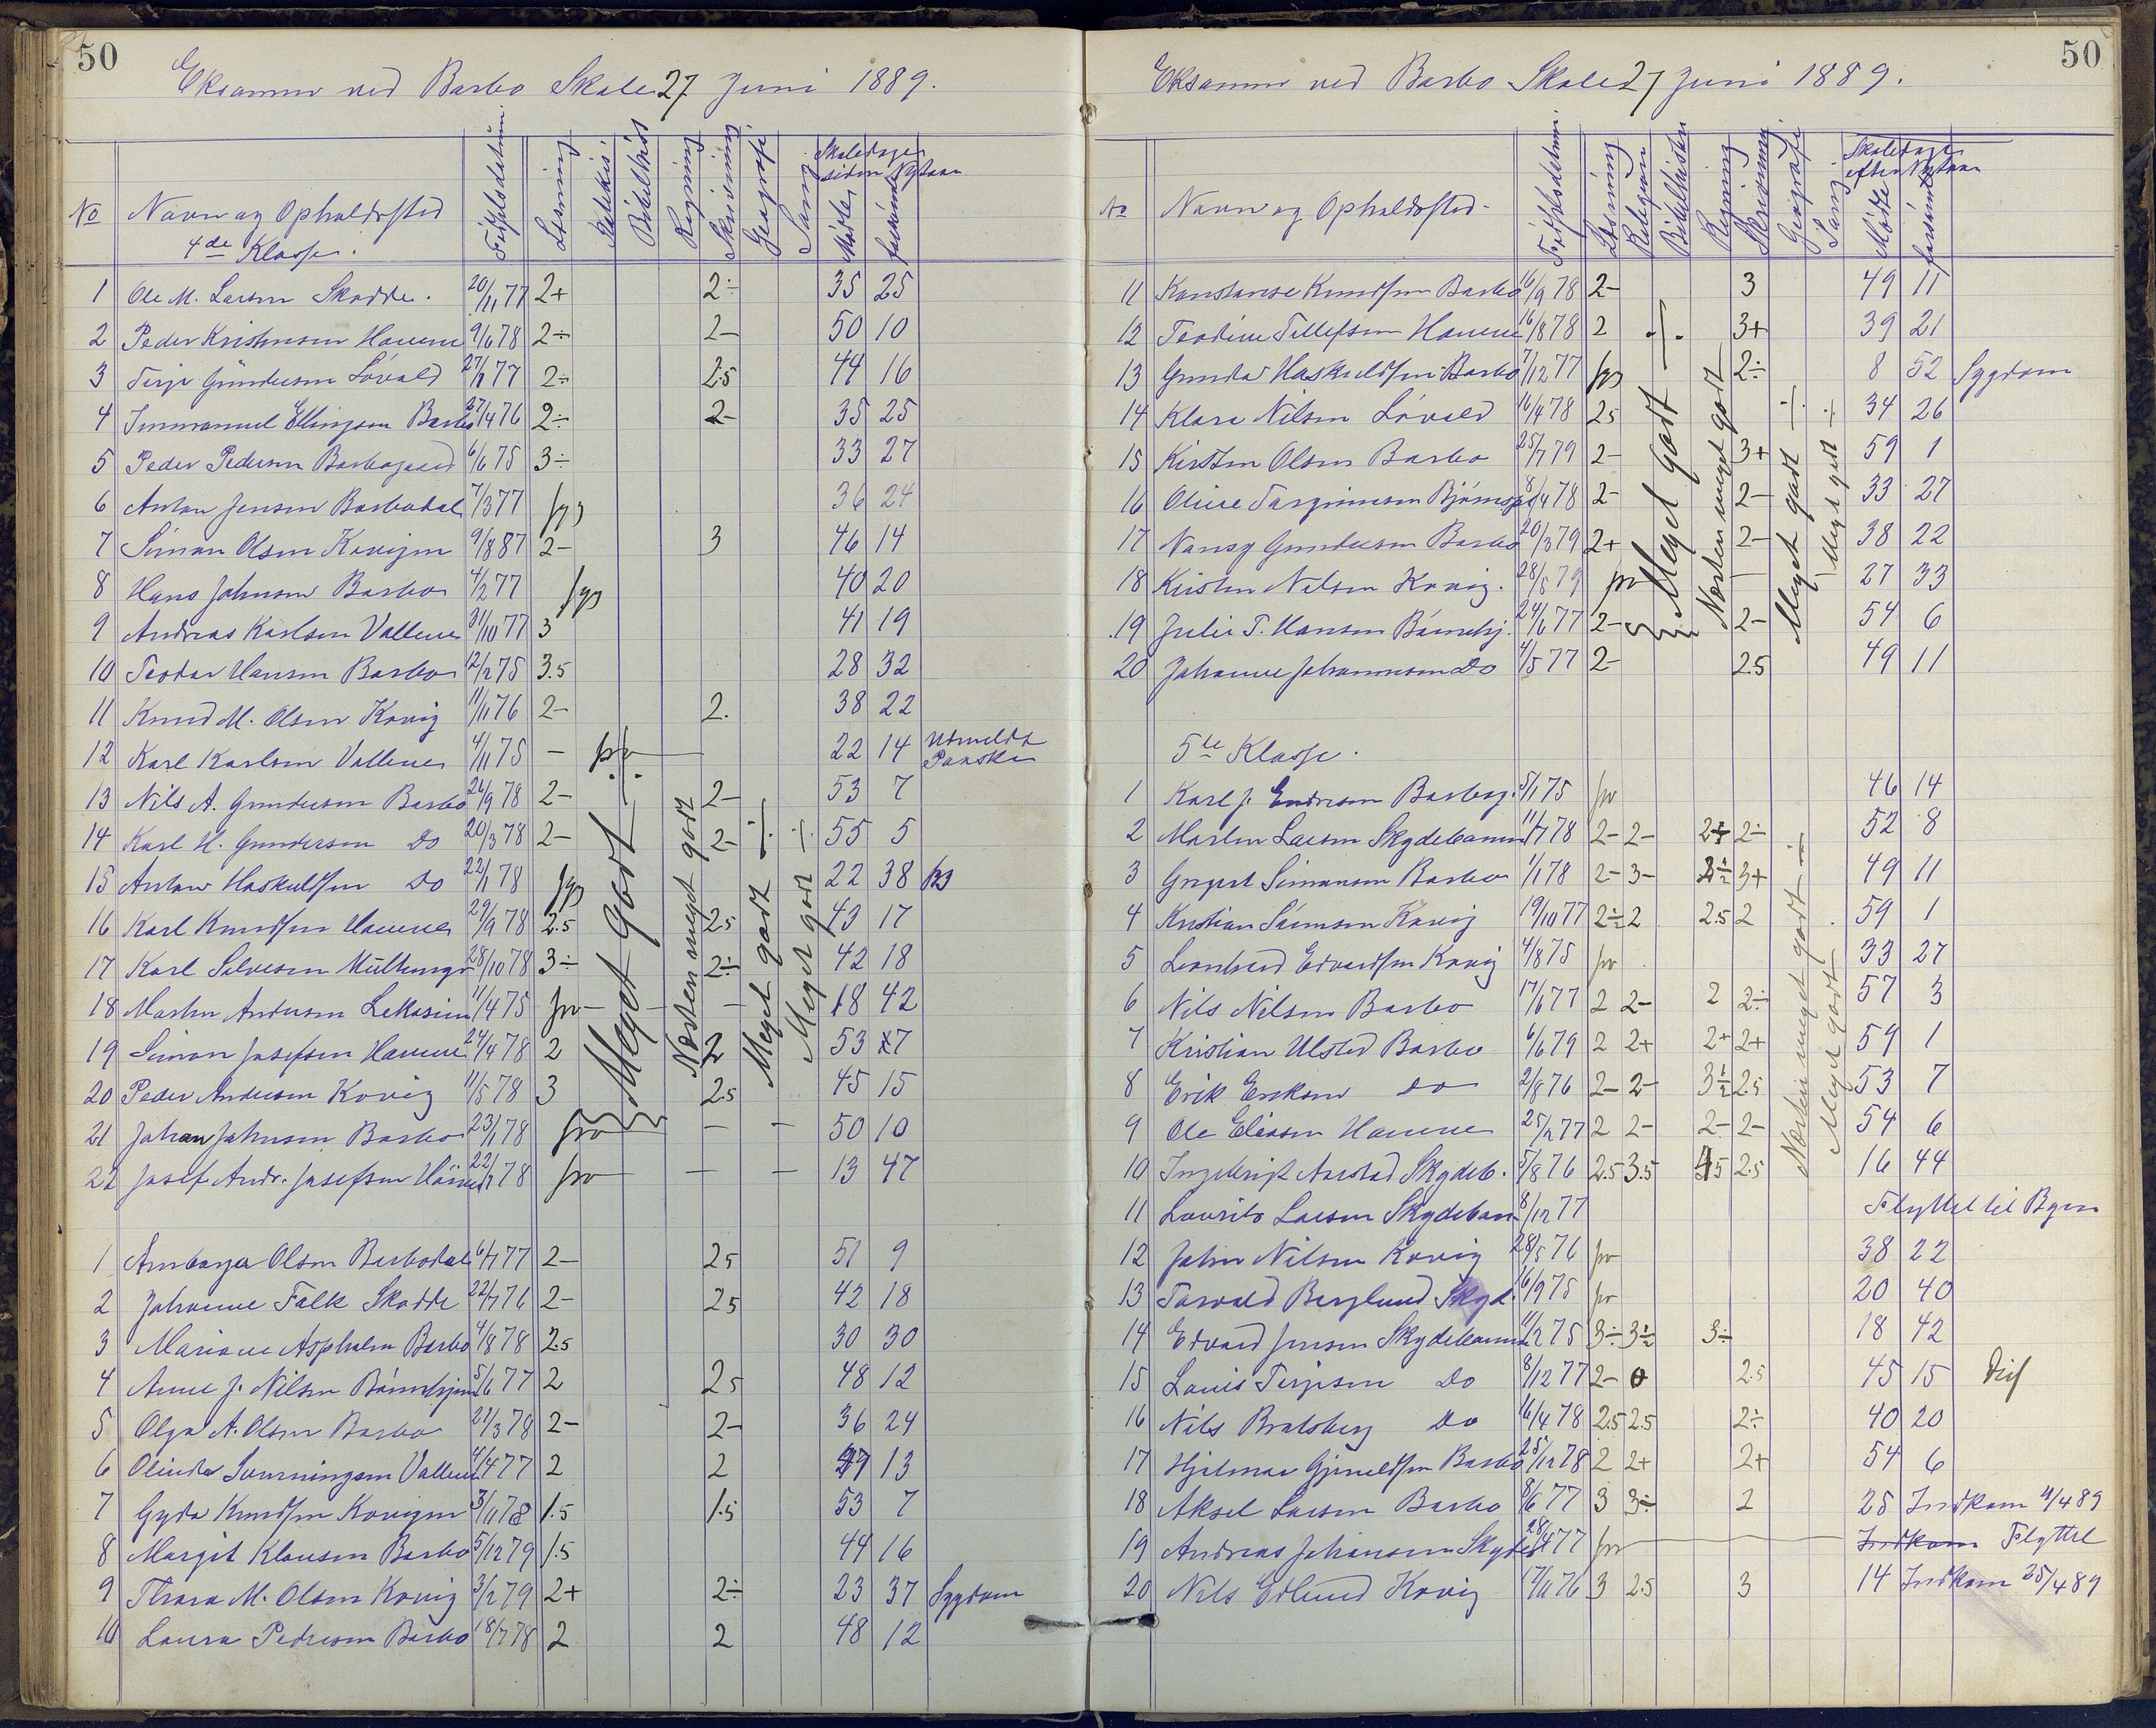 50
Eksamen ved Barbo Skole 27 Juni 1889.
No Navn og Opholdssted Fødselsdatum Læsning Katekis. Bibelhist Regning Skrivning Geografi. Sang Skoledage siden Nytaar Mødte forsømte
4de Klasse.
1 Ole M. Larsen Skodde. 20/11 77 2+ 2÷ 35 25
2 Peder Kristensen Havene 9/6 78 2÷ 2- 50 10
3 Terje Gundersen Lövold 77 2÷ 2.5 44 16
4 Immanuel Ellingsen Barbo 27/4 76 2÷ 2- 35 25
5 Peder Pedersen Barbogaard 6/6 75 3÷ 33 27
6 Anton Jensen Barbodal 7/3 77 syg 36 24
7 Simon Olsen Kovigen 9/8 87 2- 3 46 14
8 Hans Johnsen Barbo 4/2 77 syg 40 20
9 Andreas Karlsen Vallene 31/10 77 3 41 19
10 Teodor Hansen Barbo 12/2 75 3.5 28 32
11 Knud M. Olsen Kovig 11/11 76 2- 2. 38 22
12 Karl Karlsen Vallene 4/11 75 - 22 14 Utmeldt Paaske
13 Nils A. Gundersen Barbo 26/9 78 2- 2- 53 7
14 Karl H. Gundersen Do 20/3 78 2- 2- 55 5
15 Anton Haskuldsen Do 22/1 78 syg 22 38 syg
16 Karl Knudsen Havene 29/9 78 2.5 2.5 43 17
17 Karl Salvesen 28/10 78 3÷ 2÷ 42 18
18 Martin Andersen 11/4 75 fra - - 18 42
19 Simon Josefsen Havene 24/4 78 2 2 53 7
20 Peder Andersen Kovig 11/5 78 3 2.5 45 15
21 Johan Johnsen Barbo 23/1 78 fra - - 50 10
22 Josef Andr. Josefsen 22/1 78 fra - - 13 47
Meget godt ÷
Næsten meget godt
Meget godt ÷
Meget godt ÷
1 Anborga Olsen Barbodal 6/7 77 2- 25 51 9
2 Johanne Falk Skodde 22/7 76 2- 25 42 18
3 Mariane Aspholm Barbo 4/8 78 2.5 30 30
4 Anne J. Nilsen 5/6 77 2 25 48 12
5 Olga A. Olsen Barbo 21/3 78 2- 2- 36 24
6 Olinda Svenningsen Vallene 4/4 77 2 2 47 13
7 Gyda Knudsen Kovigen 3/11 78 1.5 1.5 53 7
8 Margit Klausen Barbo 5/12 79 1.5 44 16
9 Thora M. Olsen Kovig 3/2 79 2+ 2÷ 23 37 Sygdom
10 Laura Pedersen Barbo 18/7 78 2 2 48 12
50
Eksamen ved Barbo Skole 27 Juni 1889.
No Navn og Opholdssted. Fødselsdatum. Læsning Religion Bibelhistori Regning Skrivning. Geografi Sang Skoledage efter Nytaar Mødte forsømte
11 Konstanse Knudsen Barbo 16/9 78 2- 3 49 11
12 Teodine Tellefsen Havene 16/8 78 2 3+ 39 21
13 Gunda Haskuldsen Barbo 7/12 77 syg 2÷ 8 52 Sygdom
14 Klara Nilsen Lövold 16/4 78 25 34 26
15 Kirsten Olsen Barbo 25/7 79 2- 3+ 59 1
16 Olive Torgrimsen 8/4 78 2- 2- 33 27
17 Nansy Gundersen Barbo 20/3 79 2+ 2- 38 22
18 Kirsten Nilsen Kovig. 28/5 79 fra - 27 33
19 Julie T. Hansen 24/6 77 2- 2- 54 6
20 Johanne Johannesen Do 4/5 77 2- 2.5 49 11
Meget godt ÷
Næsten meget godt
Meget godt ÷
Meget godt ÷
5te Klasse.
1 Karl J. Endresen Barbog. 5/1 75 fra 46 14
2 Martin Larsen Skydebanen 11/7 78 2- 2- 2÷ 2÷ 52 8
3 Gregert Simonsen Barbo 1/1 78 2- 3- 3+ 49 11
4 Kristian Simonsen Kovig 19/10 77 2÷ 2 2.5 2 59 1
5 Leonhard Edvardsen Kovig 4/8 75 fra 33 27
6 Nils Nilsen Barbo 17/6 77 2 2- 2 2÷ 57 3
7 Kristian Ulsted Barbo 6/6 79 2 2+ 2+ 2+ 59 1
8 Erik Eriksen Do 2/8 76 2- 2- 3½ 2.5 53 7
9 Ole Eliasen Havene 25/2 77 2 2- 2- 2- 54 6
10 Ingebrigt Aarstad Skydeb. 5/8 76 2.5 3.5 45 2.5 16 44
11 Lourits Larsen Skydeban 8/12 77 Flyttet til Byen
12 John Nilsen Kovig 28/5 76 fra 38 22
13 Torvald Berglund Skyd. 16/9 75 fra 20 40
14 Edvard Jensen Skydebanen 11/12 75 3÷ 3÷ 3÷ 18 42
15 Louis Terjesen Do 8/12 77 2- 0 2.5 45 15
16 Nils Bratsberg Do 16/4 78 2.5 2.5 2÷ 40 20
17 Hjelmar Gjeruldsen Barbo 25/12 78 2 2+ 2+ 54 6
18 Aksel Larsen Barbo 8/6 77 3 3÷ 2 25 Indkom 11/4 89
19 Andreas Johansen Skydeb 28/4 77 fra Indkom Flyttet
20 Nils Edlund Kovig 17/11 76 3 2.5 3 14 Indkom 25/4 89
Næsten meget godt ÷
Meget godt